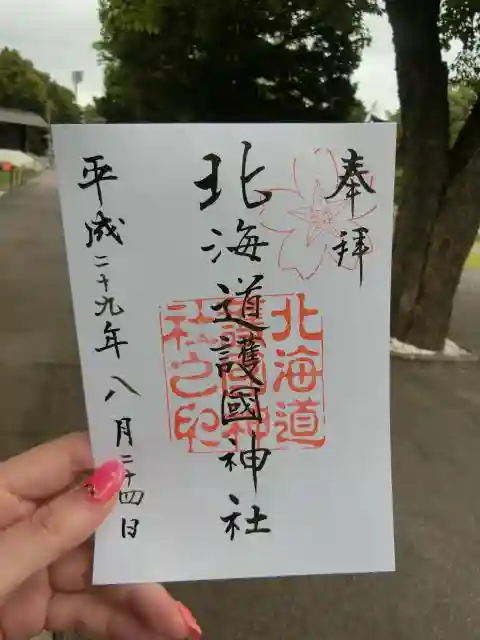 奉拝
北海道護國神社
北海道護國神社之印
平成二十九年八月二十四日